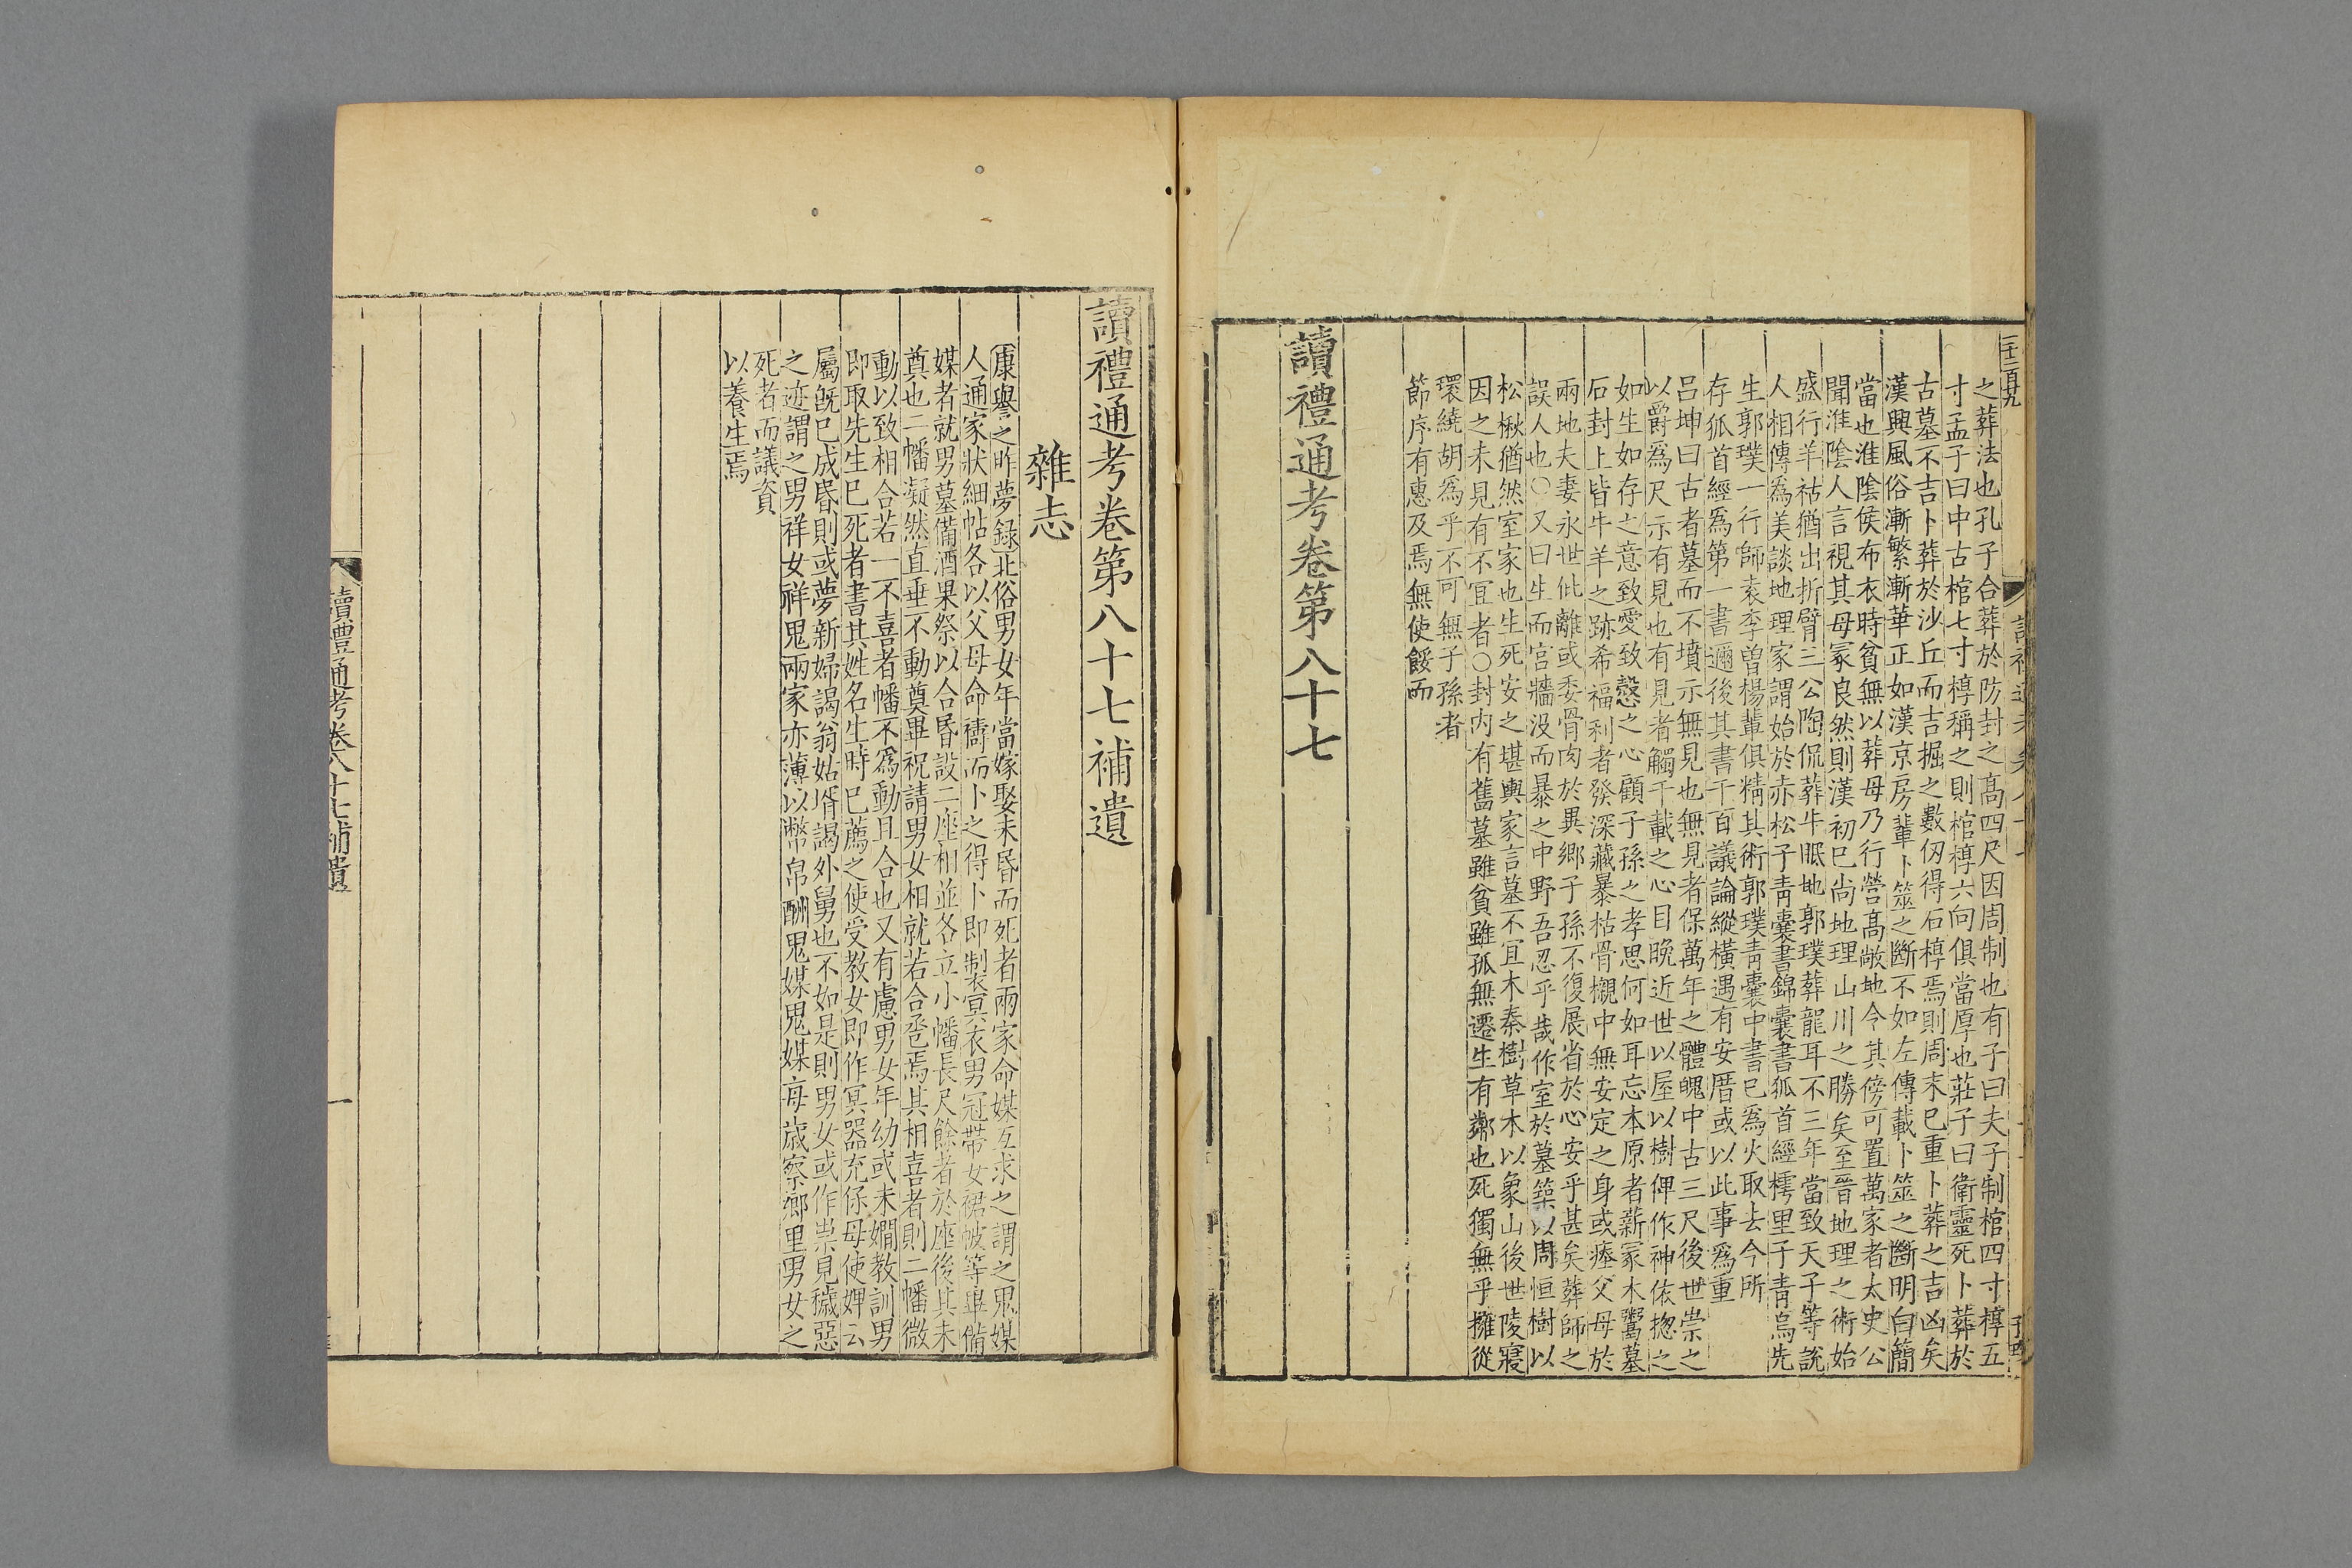 之葬法也孔子合葬於防封之髙四尺因周制也有子曰夫子制棺四寸椁五
寸孟子曰中古棺七寸椁稱之則棺椁六向俱當厚也莊子曰衛靈死卜葬於
古墓不吉卜葬於沙丘而吉掘之數仭得石椁焉則周末已重卜葬之吉凶矣
漢興風俗漸繁漸華正如漢京房輩卜筮之斷不如左傳載卜筮之斷明白簡
當也淮陰侯布衣時貧無以葬母乃行營髙敞地令其傍可置萬家者太史公
聞淮陰人言視其母冢良然則漢初已尚地理山川之勝矣至晉地理之術始
盛行羊祜猶出折臂三公陶侃葬牛眠地郭璞葬龍耳不三年當致天子等說
人相傳爲美談地理家謂始於赤松子青囊書錦囊書狐首經樗里子青烏先
生郭璞一行師袁李曽楊輩俱精其術郭璞青囊中書已爲火取去今所
存狐首經爲第一書邇後其書千百議論縱橫遇有安厝或以此事爲重
吕坤曰古者墓而不墳示無見也無見者保萬年之體魄中古三尺後世崇之
以爵爲尺示有見也有見者觸千載之心目晚近世以屋以樹俾作神依揔之
如生如存之意致愛致慤之心顧子孫之孝思何如耳忘本原者薪冢木鬻墓
石封上皆牛羊之跡希福利者發深藏暴枯骨櫬中無安定之身或瘞父母於
兩地夫妻永世仳離或委骨肉於異鄉子孫不復展省於心安乎甚矣葬師之
誤人也○又曰生而宫牆没而暴之中野吾忍乎哉作室於墓築以周恒樹以
松楸猶然室家也生死安之堪輿家言墓不宜木秦樹草木以象山後世陵寢
因之未見有不宜者○封内有舊墓雖貧雖孤無遷生有鄰也死獨無乎擁從
環繞胡爲乎不可無子孫者
節序有惠及焉無使餒而
讀禮通考卷第八十七
讀禮通考卷第八十七補遺
雜志
康譽之昨夢録北俗男女年當嫁娶未昏而死者兩家命媒互求之謂之鬼媒
人通家狀細帖各以父母命禱而卜之得卜即制冥衣男冠帶女裙帔等畢備
媒者就男墓備酒果祭以合昏設二座相並各立小幡長尺餘者於座後其未
奠也二幡凝然直垂不動奠畢祝請男女相就若合巹焉其相喜者則二幡微
動以致相合若一不喜者幡不爲動且合也又有慮男女年幼或未嫺教訓男
即取先生已死者書其姓名生時已薦之使受教女即作冥器充保母使婢云
屬旣已成昏則或夢新婦謁翁姑壻謁外舅也不如是則男女或作祟見穢惡
之迹謂之男祥女祥鬼兩家亦薄以幣帛酬鬼媒鬼媒每歲察鄉里男女之
死者而議資
以養生焉
讀禮通考卷八十七補遺
一